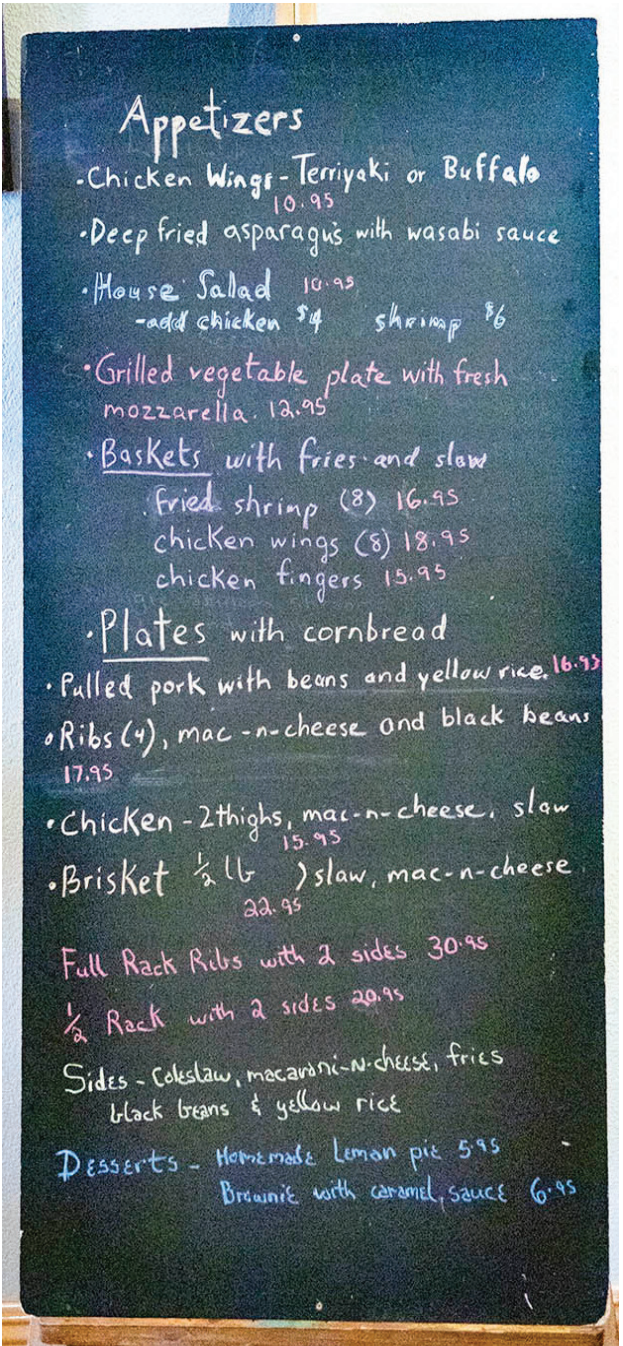 Appetizers
• Chicken Wings - Terriyaki or Buffalo
10.95
• Deep fried asparagus with wasabi sauce
• House Salad 10.95
- add chicken $4 shrimp $6
• Grilled vegetable plate with fresh
mozzarella. 12.95
• Baskets with fries and slaw
. Fried shrimp (8) 16.95
chicken wings (8) 18.95
chicken fingers 15.95
• Plates with cornbread
• Pulled pork with beans and yellow rice. 16.95
• Ribs (4), mac-n-cheese and black beans
17.95
• Chicken - 2 thighs, mac-n-cheese, slaw
15.95
• Brisket 1/2 lb ) slaw, mac-n-cheese
22.95
Full Rack Ribs with 2 sides 30.95
1/2 Rack with 2 sides 20.95
Sides - Coleslaw, macaroni-N-cheese, fries
black beans & yellow rice
Desserts - Homemade Lemon pie 5.95
Brownie with caramel sauce 6.95